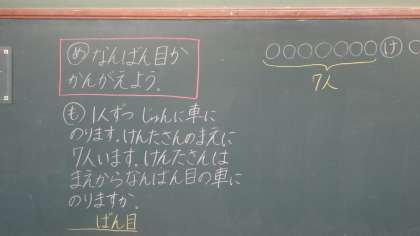 め なんばん目か
かんがえよう。
も 1人ずつ じゅんに車に
のります。けんたさんのまえに
7人います。けんたさんは
まえからなんばん目の車に
のりますか。
ばん目
○○○○○○○け○
7人